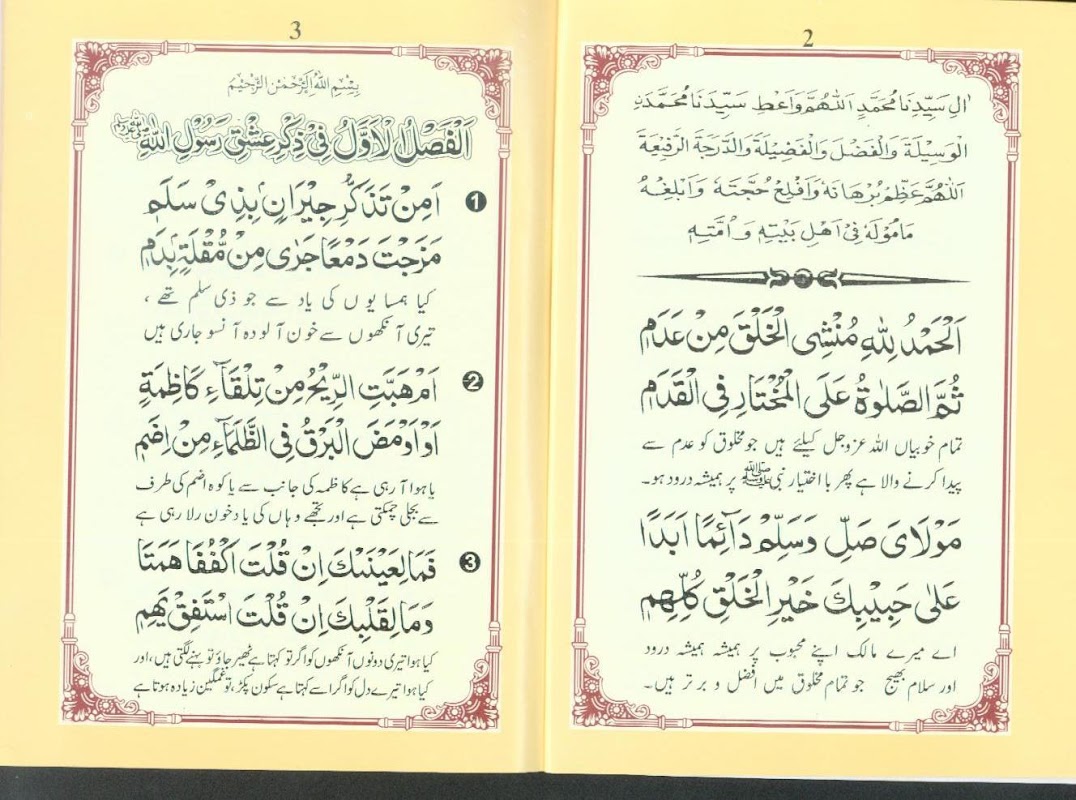 2
اٰلِ سَيِّدِنَا مُحَمَّدٍ اَللّٰهُمَّ وَاَعْطِ سَيِّدَنَا مُحَمَّدَنِ
الْوَسِيْلَةَ وَالْفَضْلَ وَالْفَضِيْلَةَ وَالدَّرَجَةَ الرَّفِيْعَةَ
اَللّٰهُمَّ عَظِّمْ بُرْهَانَهٗ وَاَفْلِحْ حُجَّتَهٗ وَاَبْلِغْهُ
مَامُوْلَهٗ فِیْ اَهْلِ بَيْتِهٖ وَاُمَّتِهٖ
اَلْحَمْدُ لِلّٰهِ مُنْشِی الْخَلْقَ مِنْ عَدَمٖ
ثُمَّ الصَّلٰوةُ عَلَی الْمُخْتَارِ فِی الْقَدَمٖ
تمام خوبیاں اللہ عزوجل کیلئے ہیں جو مخلوق کو عدم سے
پیدا کرنے والا ہے پھر با اختیار نبی ﷺ پر ہمیشہ درود ہو۔
مَوْلَایَ صَلِّ وَسَلِّمْ دَآئِمًا اَبَدًا
عَلٰی حَبِيْبِكَ خَيْرِ الْخَلْقِ كُلِّهِمٖ
اے میرے مالک اپنے محبوب پر ہمیشہ ہمیشہ درود
اور سلام بھیج جو تمام مخلوق میں افضل و برتر ہیں۔
3
بِسْمِ اللهِ الرَّحْمٰنِ الرَّحِيْمِ
اَلْفَصْلُ الْاَوَّلُ فِیْ ذِكْرِ عِشْقِ رَسُوْلِ اللهِ ﷺ
1 اَمِنْ تَذَكُّرِ جِيْرَانٍ بِذِیْ سَلَمٖ
مَزَجْتَ دَمْعًا جَرٰی مِنْ مُّقْلَةٍ بِدَمٖ
کیا ہمسایوں کی یاد سے جو ذی سلم تھے ،
تیری آنکھوں سے خون آلودہ آنسو جاری ہیں
2 اَمْ هَبَّتِ الرِّيْحُ مِنْ تِلْقَآءِ كَاظِمَةٍ
اَوْ اَوْمَضَ الْبَرْقُ فِی الظَّلْمَآءِ مِنْ اِضَمٖ
یا ہوا آ رہی ہے کاظمہ کی جانب سے یا کوہ اضم کی طرف
سے بجلی چمکتی ہے اور تجھے وہاں کی یاد خون رلا رہی ہے
3 فَمَا لِعَيْنَيْكَ اِنْ قُلْتَ اكْفُفَا هَمَتَا
وَمَا لِقَلْبِكَ اِنْ قُلْتَ اسْتَفِقْ يَهِمٖ
کیا ہوا تیری دونوں آنکھوں کو اگر تو کہتا ہے ٹھیر جاؤ تو بہنے لگتی ہیں، اور
کیا ہوا تیرے دل کو اگر اسے کہتا ہے سکون پکڑ، تو غمگین زیادہ ہوتا ہے